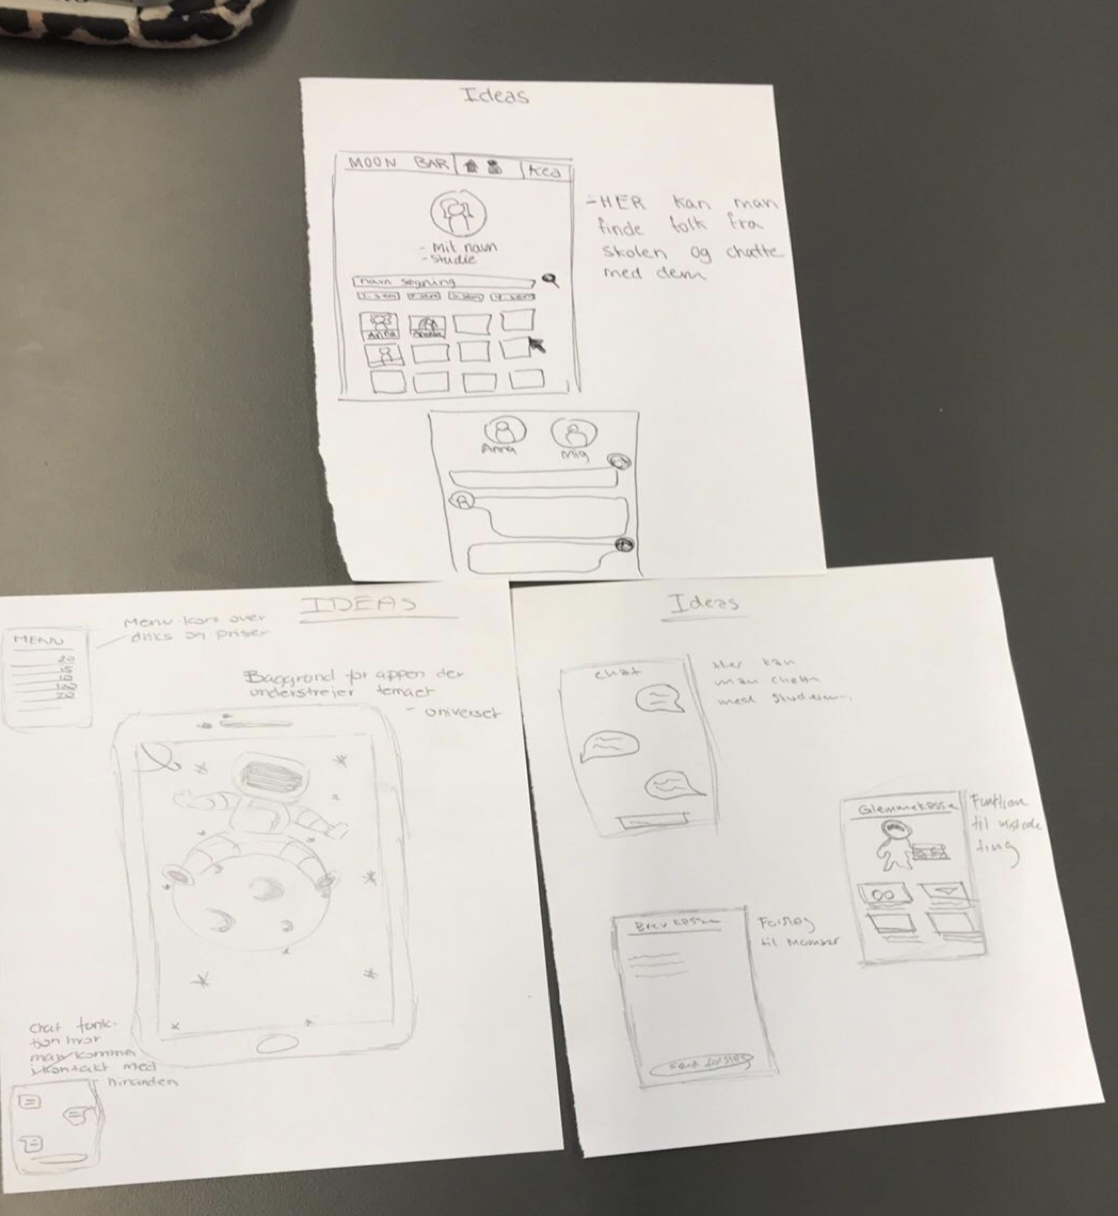 Ideas
MOON BAR
Kea
- Mit navn
- Studie
navn søgning
1. sem 2. sem 3. sem 4. sem
Anna
-HER kan man
finde folk fra
skolen og chatte
med dem
Anna
Mig
IDEAS
MENU
20
15
Menu-kort over
driks og priser
Baggrund for appen der
understrejer temaet
- universet
Chat funk-
tion hvor
man komme
i kontakt med
hinanden
Ideas
chat
Her kan
man chatte
med
Glemmekasse
Funktion
til mistede
ting
Brev kasse
Forslag
til
Send forslag